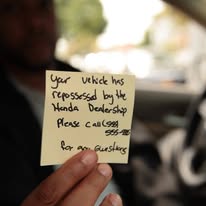 Your vehicle has
repossessed by the
Honda Dealership
Please call (555)
555-
for any questions